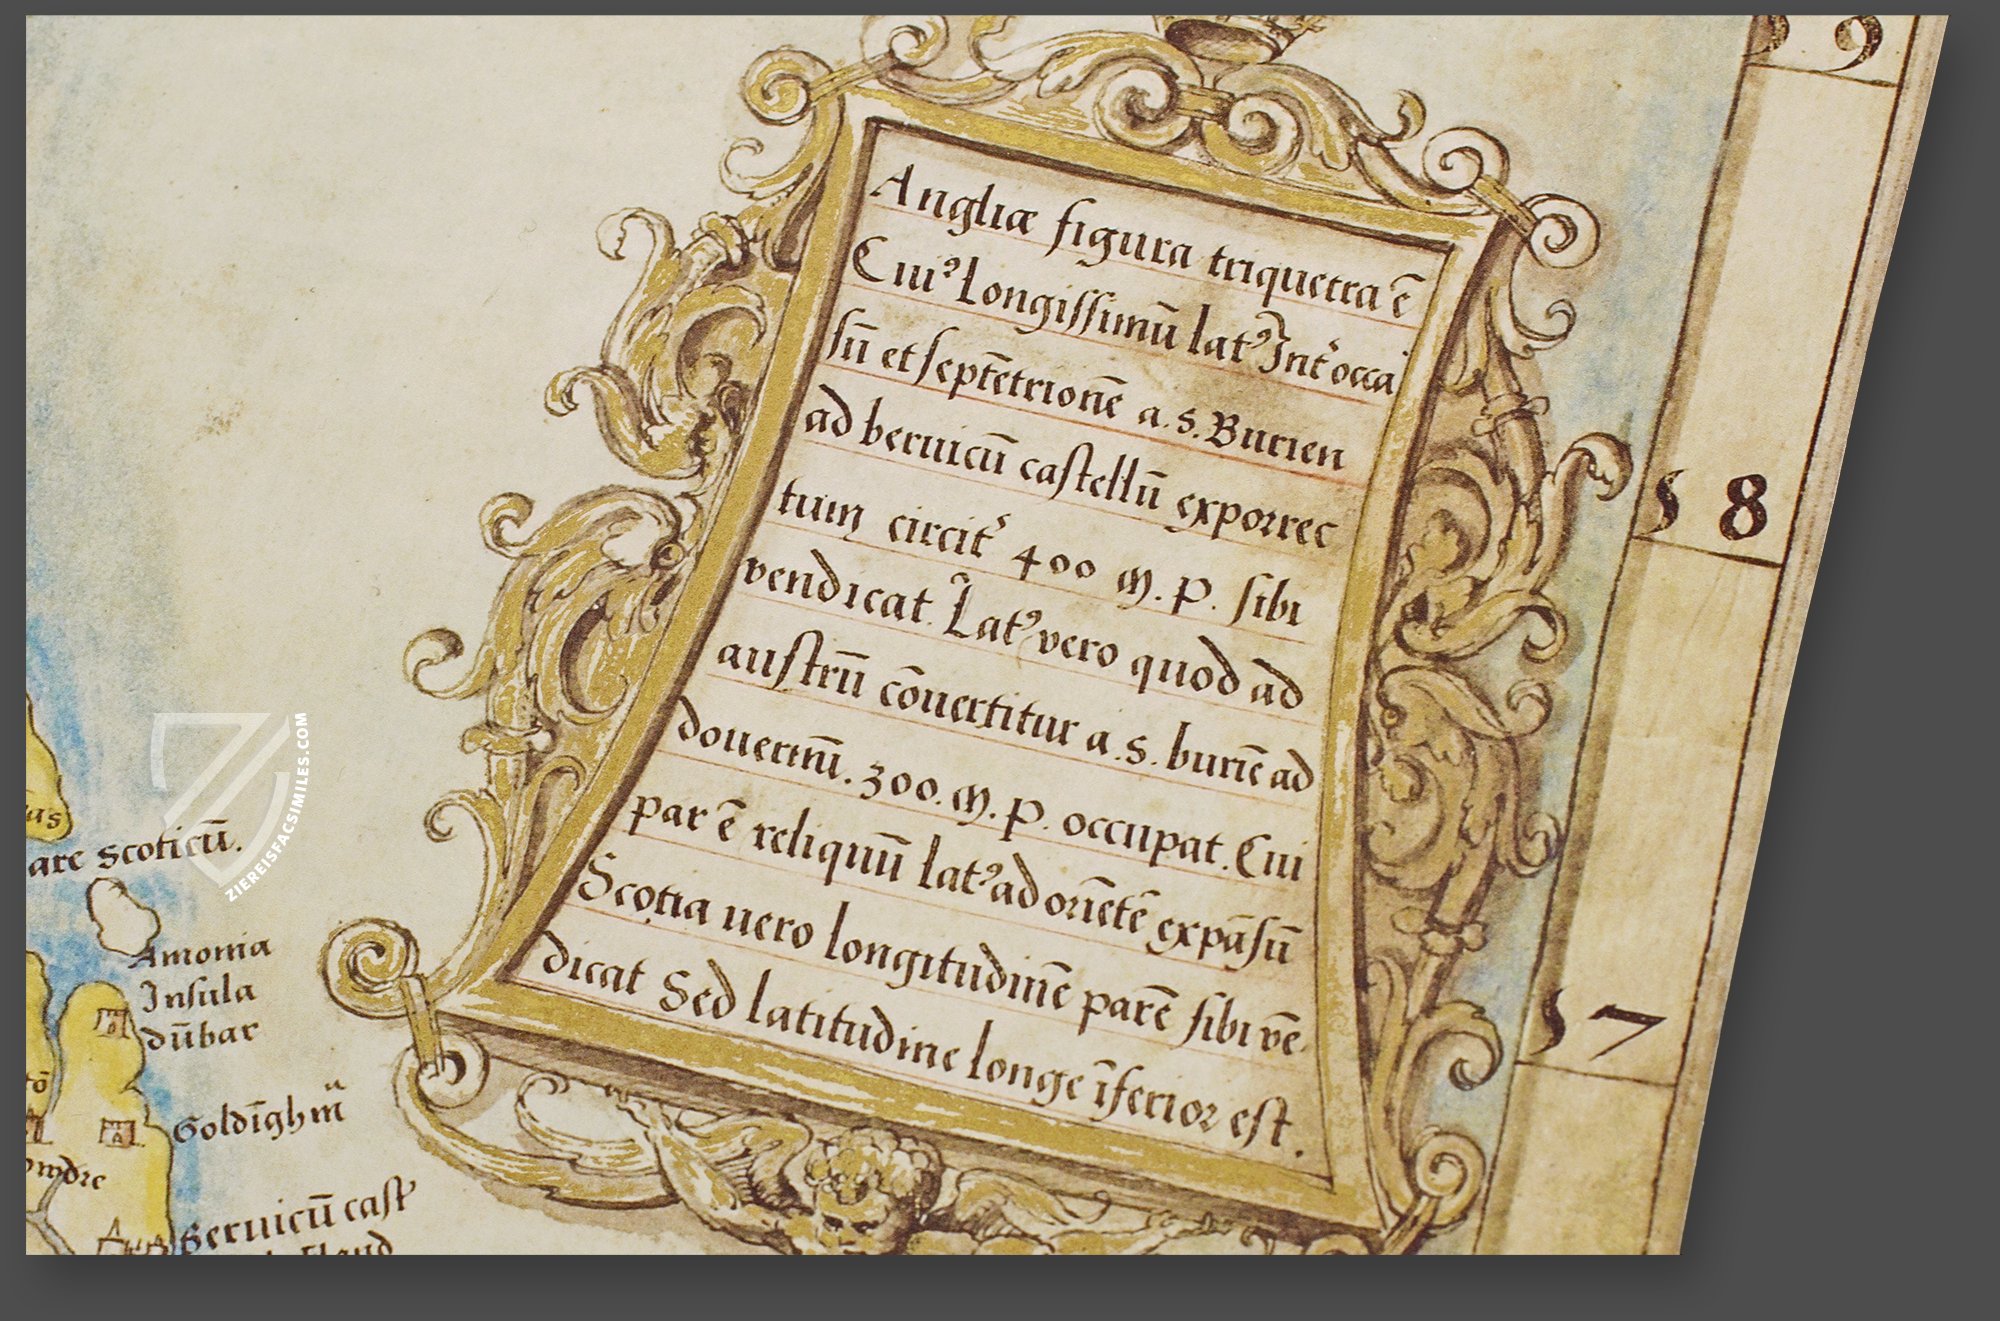 Angliæ figura triquetra ē
Cuiꝰ longissimū latꝰ Int᷑ occa
sū et septētrionē a.s. Burien
ad beruicū castellū exporrec
tum circit᷑ 400 M. P. sibi
vendicat. Latꝰ vero quod ad
austrū cōuertitur a.s. buriē ad
douerinū. 300. M. P. occupat. Cui
par ē reliquū latꝰ ad oriētē expāsū
Scotia uero longitudinē parē sibi vē
dicat Sed latitudine longe īferior est.
9
58
57
as
are scoticū.
Amonia
Insula
dūbar
Goldīghm̄
Beruicū cast
ZIEREISFACSIMILES.COM